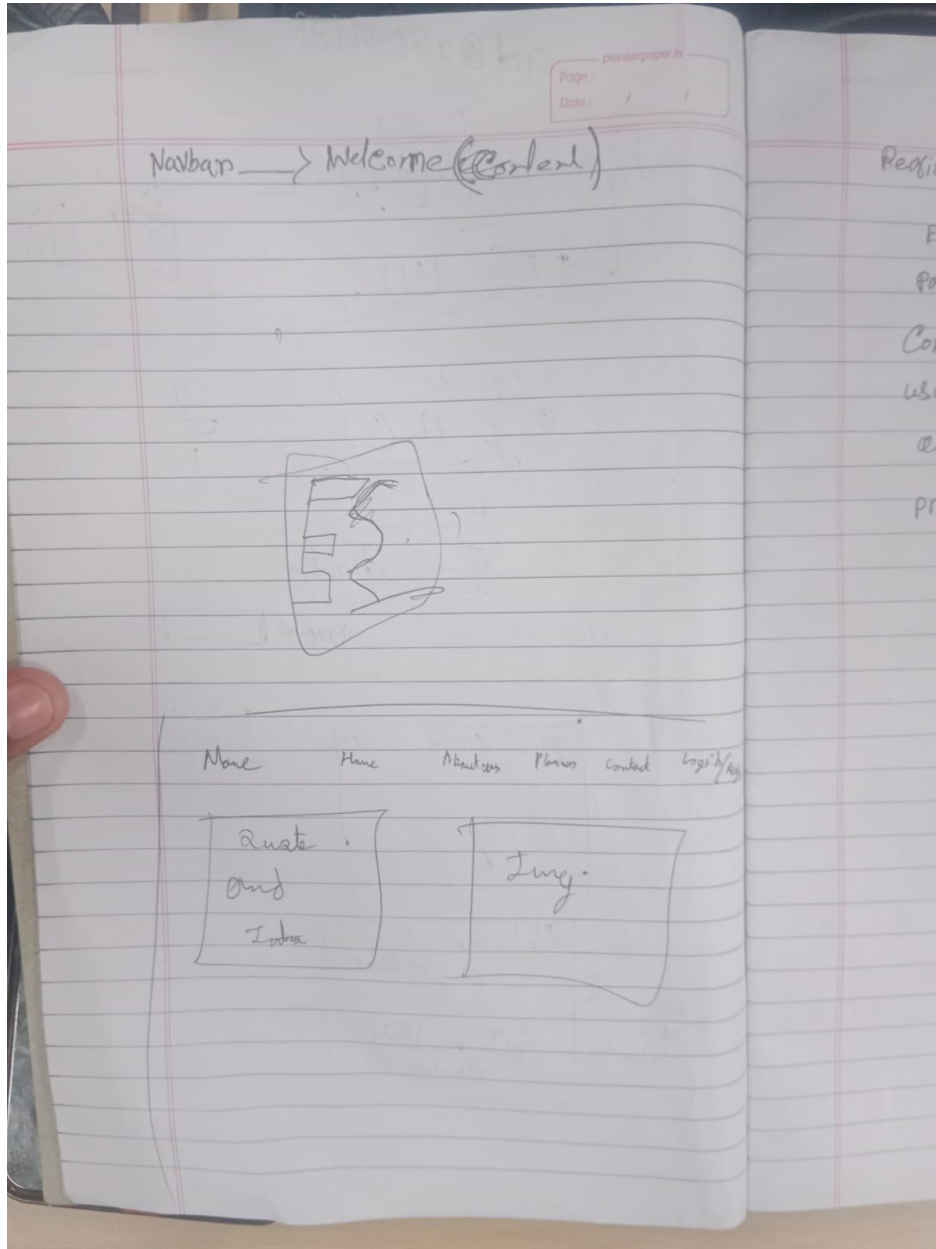 pioneerpaper.in
Page :
Date : / /
Navbar → Welcome (Content)
Name Home About us Planner Contact Login/Reg
Quote
and
Intro
Img.
Co
us
pr